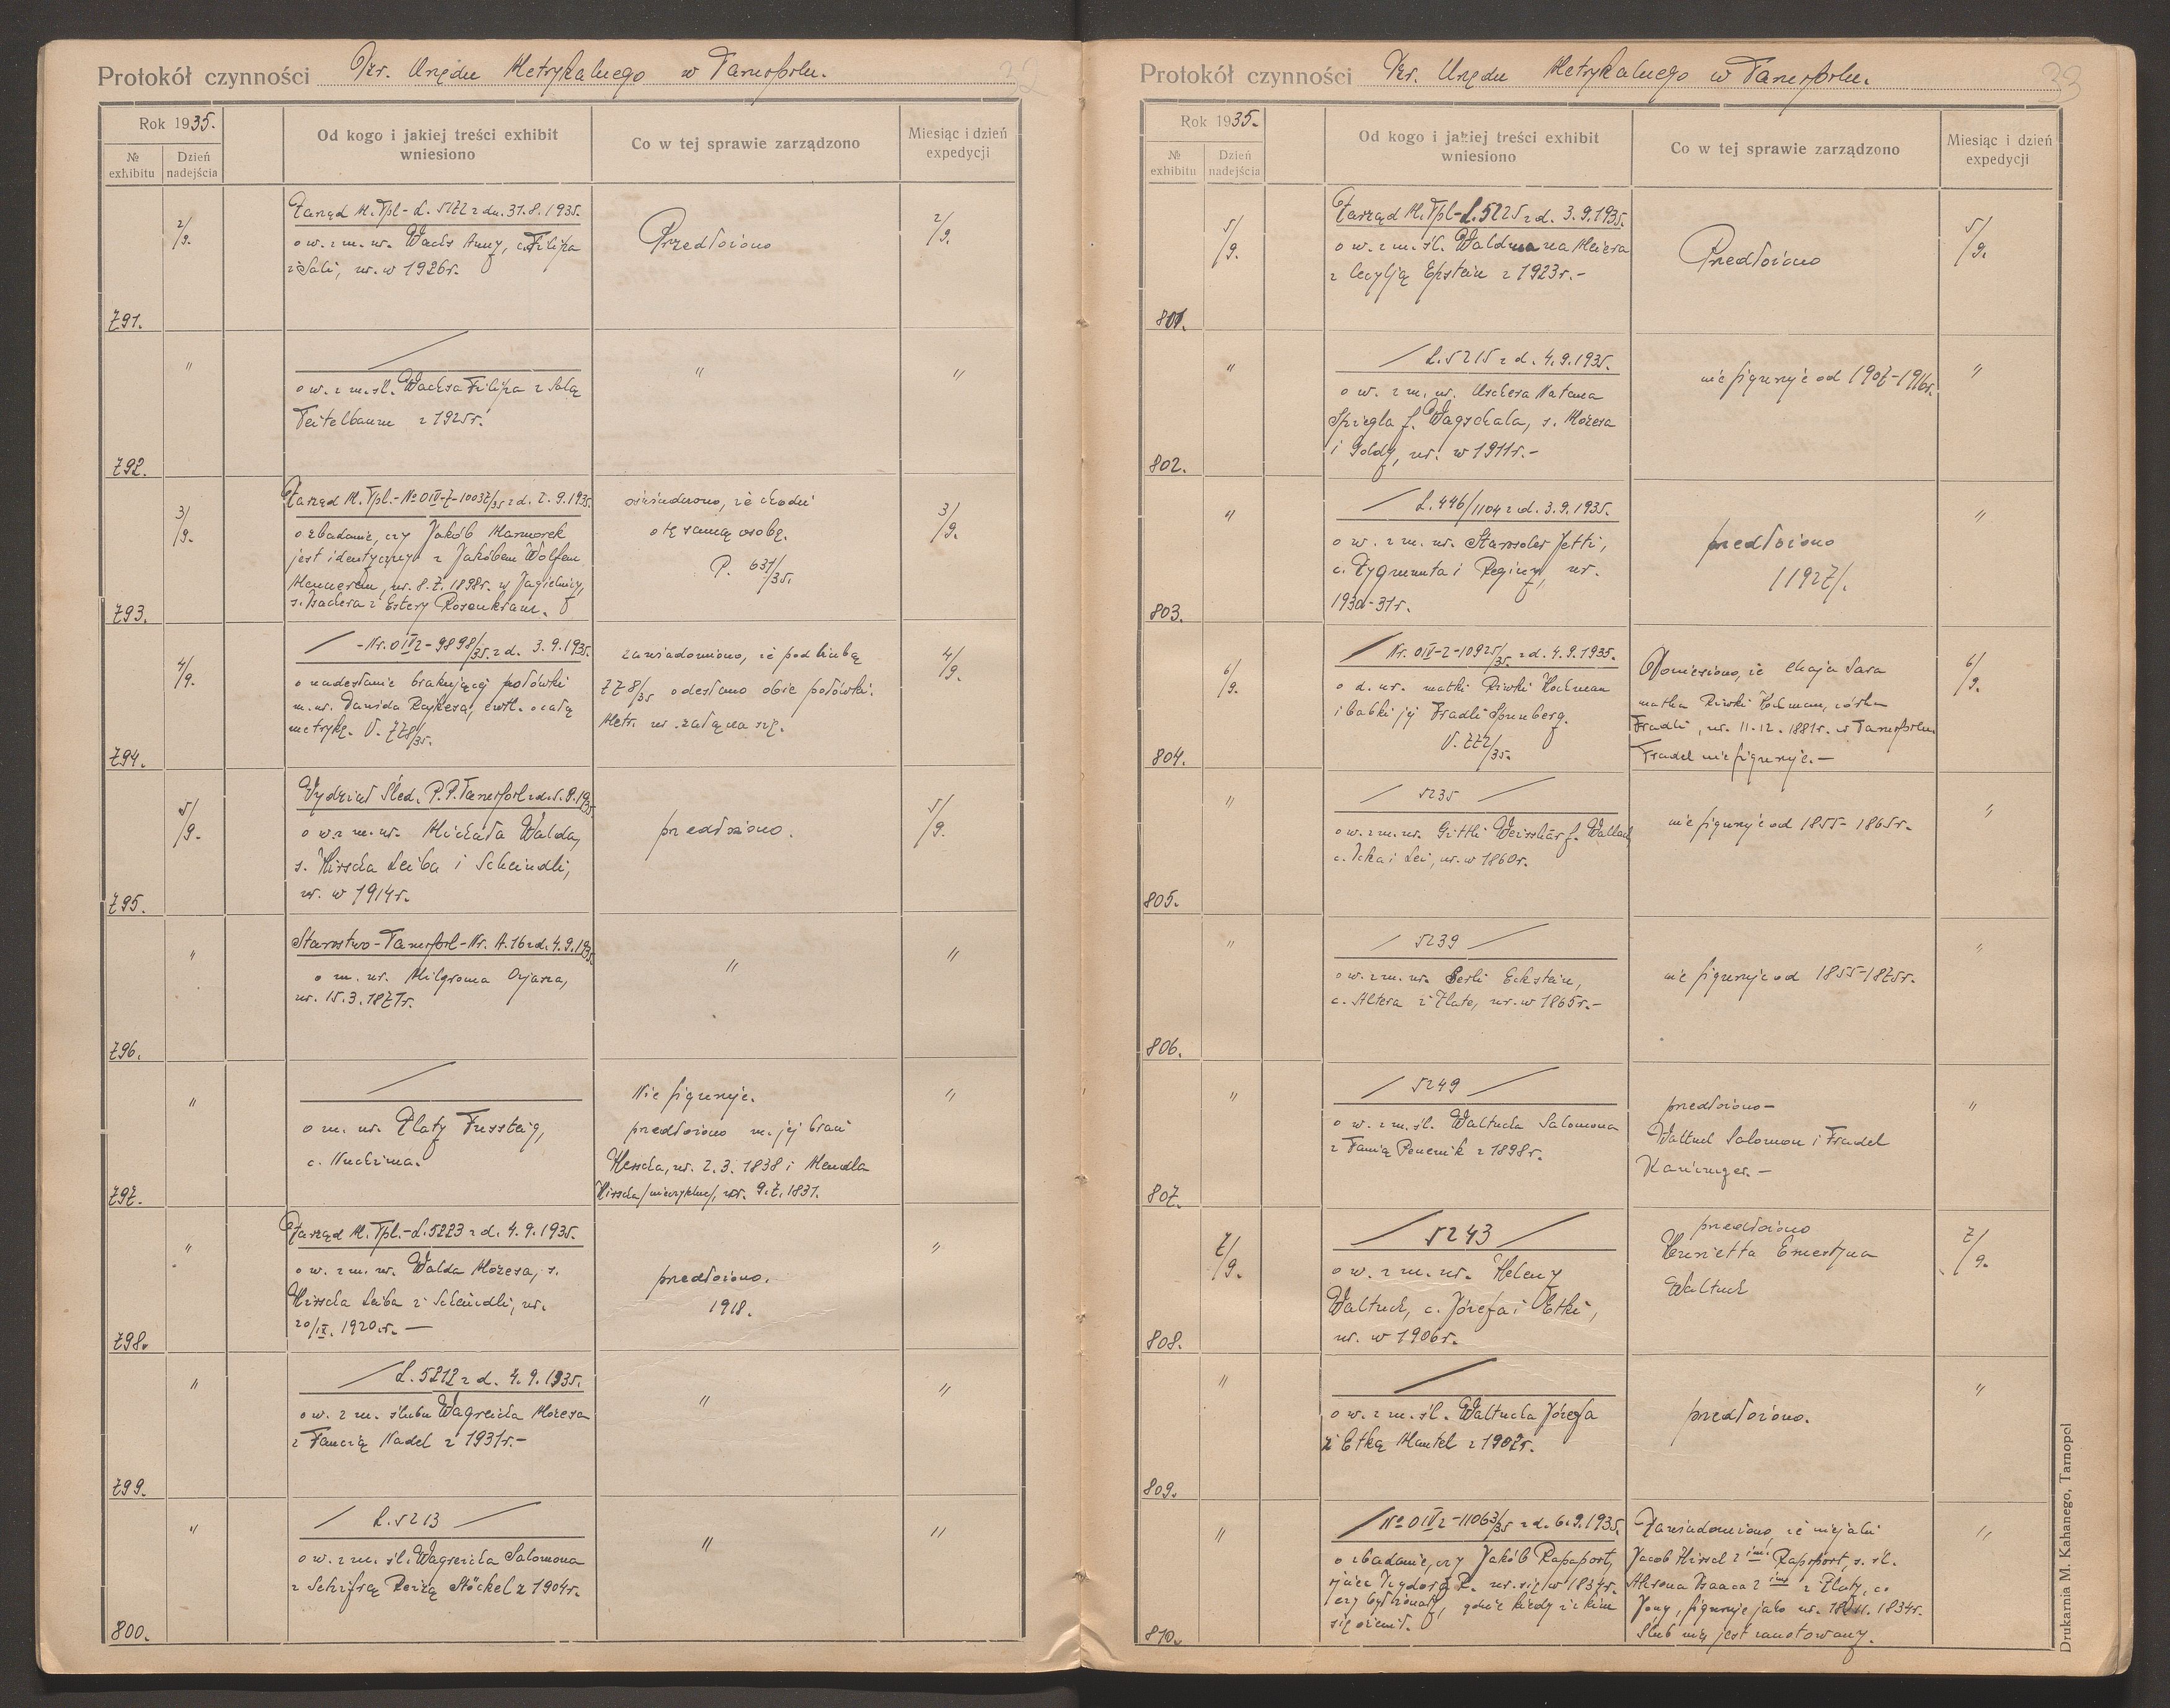 Protokół czynności Izr. Urzędu Metrykalnego w Tarnopolu.
Rok 1935.
№ exhibitu
Dzień nadejścia
Od kogo i jakiej treści exhibit wniesiono
Co w tej sprawie zarządzono
Miesiąc i dzień expedycji
791.
2/9.
Zarząd M. Tpl - L. 5172 z dn. 31.8.1935.
o w. z m. ur. Wachs Anny, c. Filipa
i Sali, ur. w 1926r.
Przedłożono
2/9.
792.
"
o w. z m. śl. Wachsa Filipa z Salą
Teitelbaum z 1925r.
"
"
793.
3/9.
Zarząd M. Tpl. - № OIV-Z-10037/35 z d. 2.9.1935.
o zbadanie, czy Jakób Marmorek
jest identyczny z Jakóbem Wolfem
ur. 8.7.1898r. w Jagielnicy,
s. i Estery Rosenkranz.
oświadczono, że chodzi
o tę samą osobę.
P. 631/35.
3/9.
794.
4/9.
- Nr. OIV2-9898/35. z d. 3.9.1935.
o nadesłanie brakującej połówki
m. ur. Dawida ewtl. o całą
metrykę. V. 778/35.
zawiadomiono, że pod liczbą
778/35 odesłano obie połówki.
Metr. ur. załącza się.
4/9.
795.
5/9.
Wydział Śled. P.P. Tarnopol z d. 5.9.1935
o w z m. ur. Michała Walda,
s. Hirscha Leiba i Scheindli,
ur. w 1914r.
przedłożono.
5/9.
796.
"
Starostwo - Tarnopol - Nr. A.16 z d. 4.9.1935.
o m. ur. Milgroma Ozjasza,
ur. 15.3.1871r.
"
"
797.
"
o m. ur. Złaty Fussteig,
c. Nuchima.
Nie figuruje.
przedłożono m. jej braci
Herscha, ur. 2.3.1838 i Mendla
Hirscha ur. 9.7.1831.
"
798.
"
Zarząd M. Tpl. - L. 5223 z d. 4.9.1935.
o w. z m. ur. Walda Mozesa, s.
Hirscha Leiba i Scheindli, ur.
20/IX. 1920.r. —
przedłożono.
1918.
"
799.
"
L. 5212 z d. 4.9.1935.
o w. z m. ślubu Mozesa
z Nadel z 1931r. -
"
"
800.
"
L. 5213
o w. z m. śl. Salomona
z Schifrą Reizą Stöckel z 1904r.
"
"
Protokół czynności Izr. Urzędu Metrykalnego w Tarnopolu.
33
Rok 1935.
№ exhibitu
Dzień nadejścia
Od kogo i jakiej treści exhibit wniesiono
Co w tej sprawie zarządzono
Miesiąc i dzień expedycji
801.
5/9.
Zarząd M. Tpl - L. 5225 z d. 3.9.1935.
o w. z m. śl. Waldmana Meiera
z Cecylją Epstein z 1923r. -
Przedłożono
5/9.
802.
"
L. 5215 z d. 4.9.1935.
o w. z m. ur. Aschera Natana
Spiegla f. Wagschala, s. Mozesa
i Goldy, ur. w 1911r. -
nie figuruje od 1907-1916r.
"
803.
"
L. 446/1104 z d. 3.9.1935.
o w. z m. ur. Starosoler Jetti,
c. Zygmunta i Reginy, ur.
1930-31r.
przedłożono
11927/.
"
804.
6/9.
Nr. OIV-2-10925/35 z d. 4.9.1935.
o d. ur. matki Riwki Hochman
i babki jej Fradli Sonnberg.
V. 772/35.
Doniesiono, że Chaja Sara
matka Riwki Hochman, córka
Fradli, ur. 11.12.1881r. w Tarnopolu.
Fradel nie figuruje. —
6/9.
805.
"
5235
o w. z m. ur. Gittli Weisshär f. Wallach
c. Icka i Lei, ur. w 1860r.
nie figuruje od 1855-1865r.
"
806.
"
5239
o w. z m. ur. Perli Eckstein,
c. Altera i Złate, ur. w 1865r. -
nie figuruje od 1855-1875r.
"
807.
"
5249
o w. z m. śl. Waltucha Salomona
z Fanią z 1898r.
przedłożono -
Waltuch Salomon i Fradel
"
808.
7/9.
5243
o w. z m. ur. Heleny
Waltuch, c. Józefa i Etki,
ur. w 1906r.
przedłożono
Henrietta Ernestyna
Waltuch
7/9.
809.
"
o w. z m. śl. Waltucha Józefa
z Etką Mantel z 1902r.
przedłożono.
"
810.
"
№ OIV2-11063/35 z d. 6.9.1935.
o zbadanie, czy Jakób Rapaport,
ojciec R. ur. się w 1834r.
czy był żonaty, gdzie kiedy i z kim
się ożenił.
Zawiadomiono, że niejaki
Jacob Hirsch 2 im. Rapoport, s. śl.
Ahrona Isaaca 2 im. i Złaty, c.
Jony, figuruje jako ur. 1834r.
Ślub nie jest zanotowany.
"
Drukarnia M. Kahanego, Tarnopol